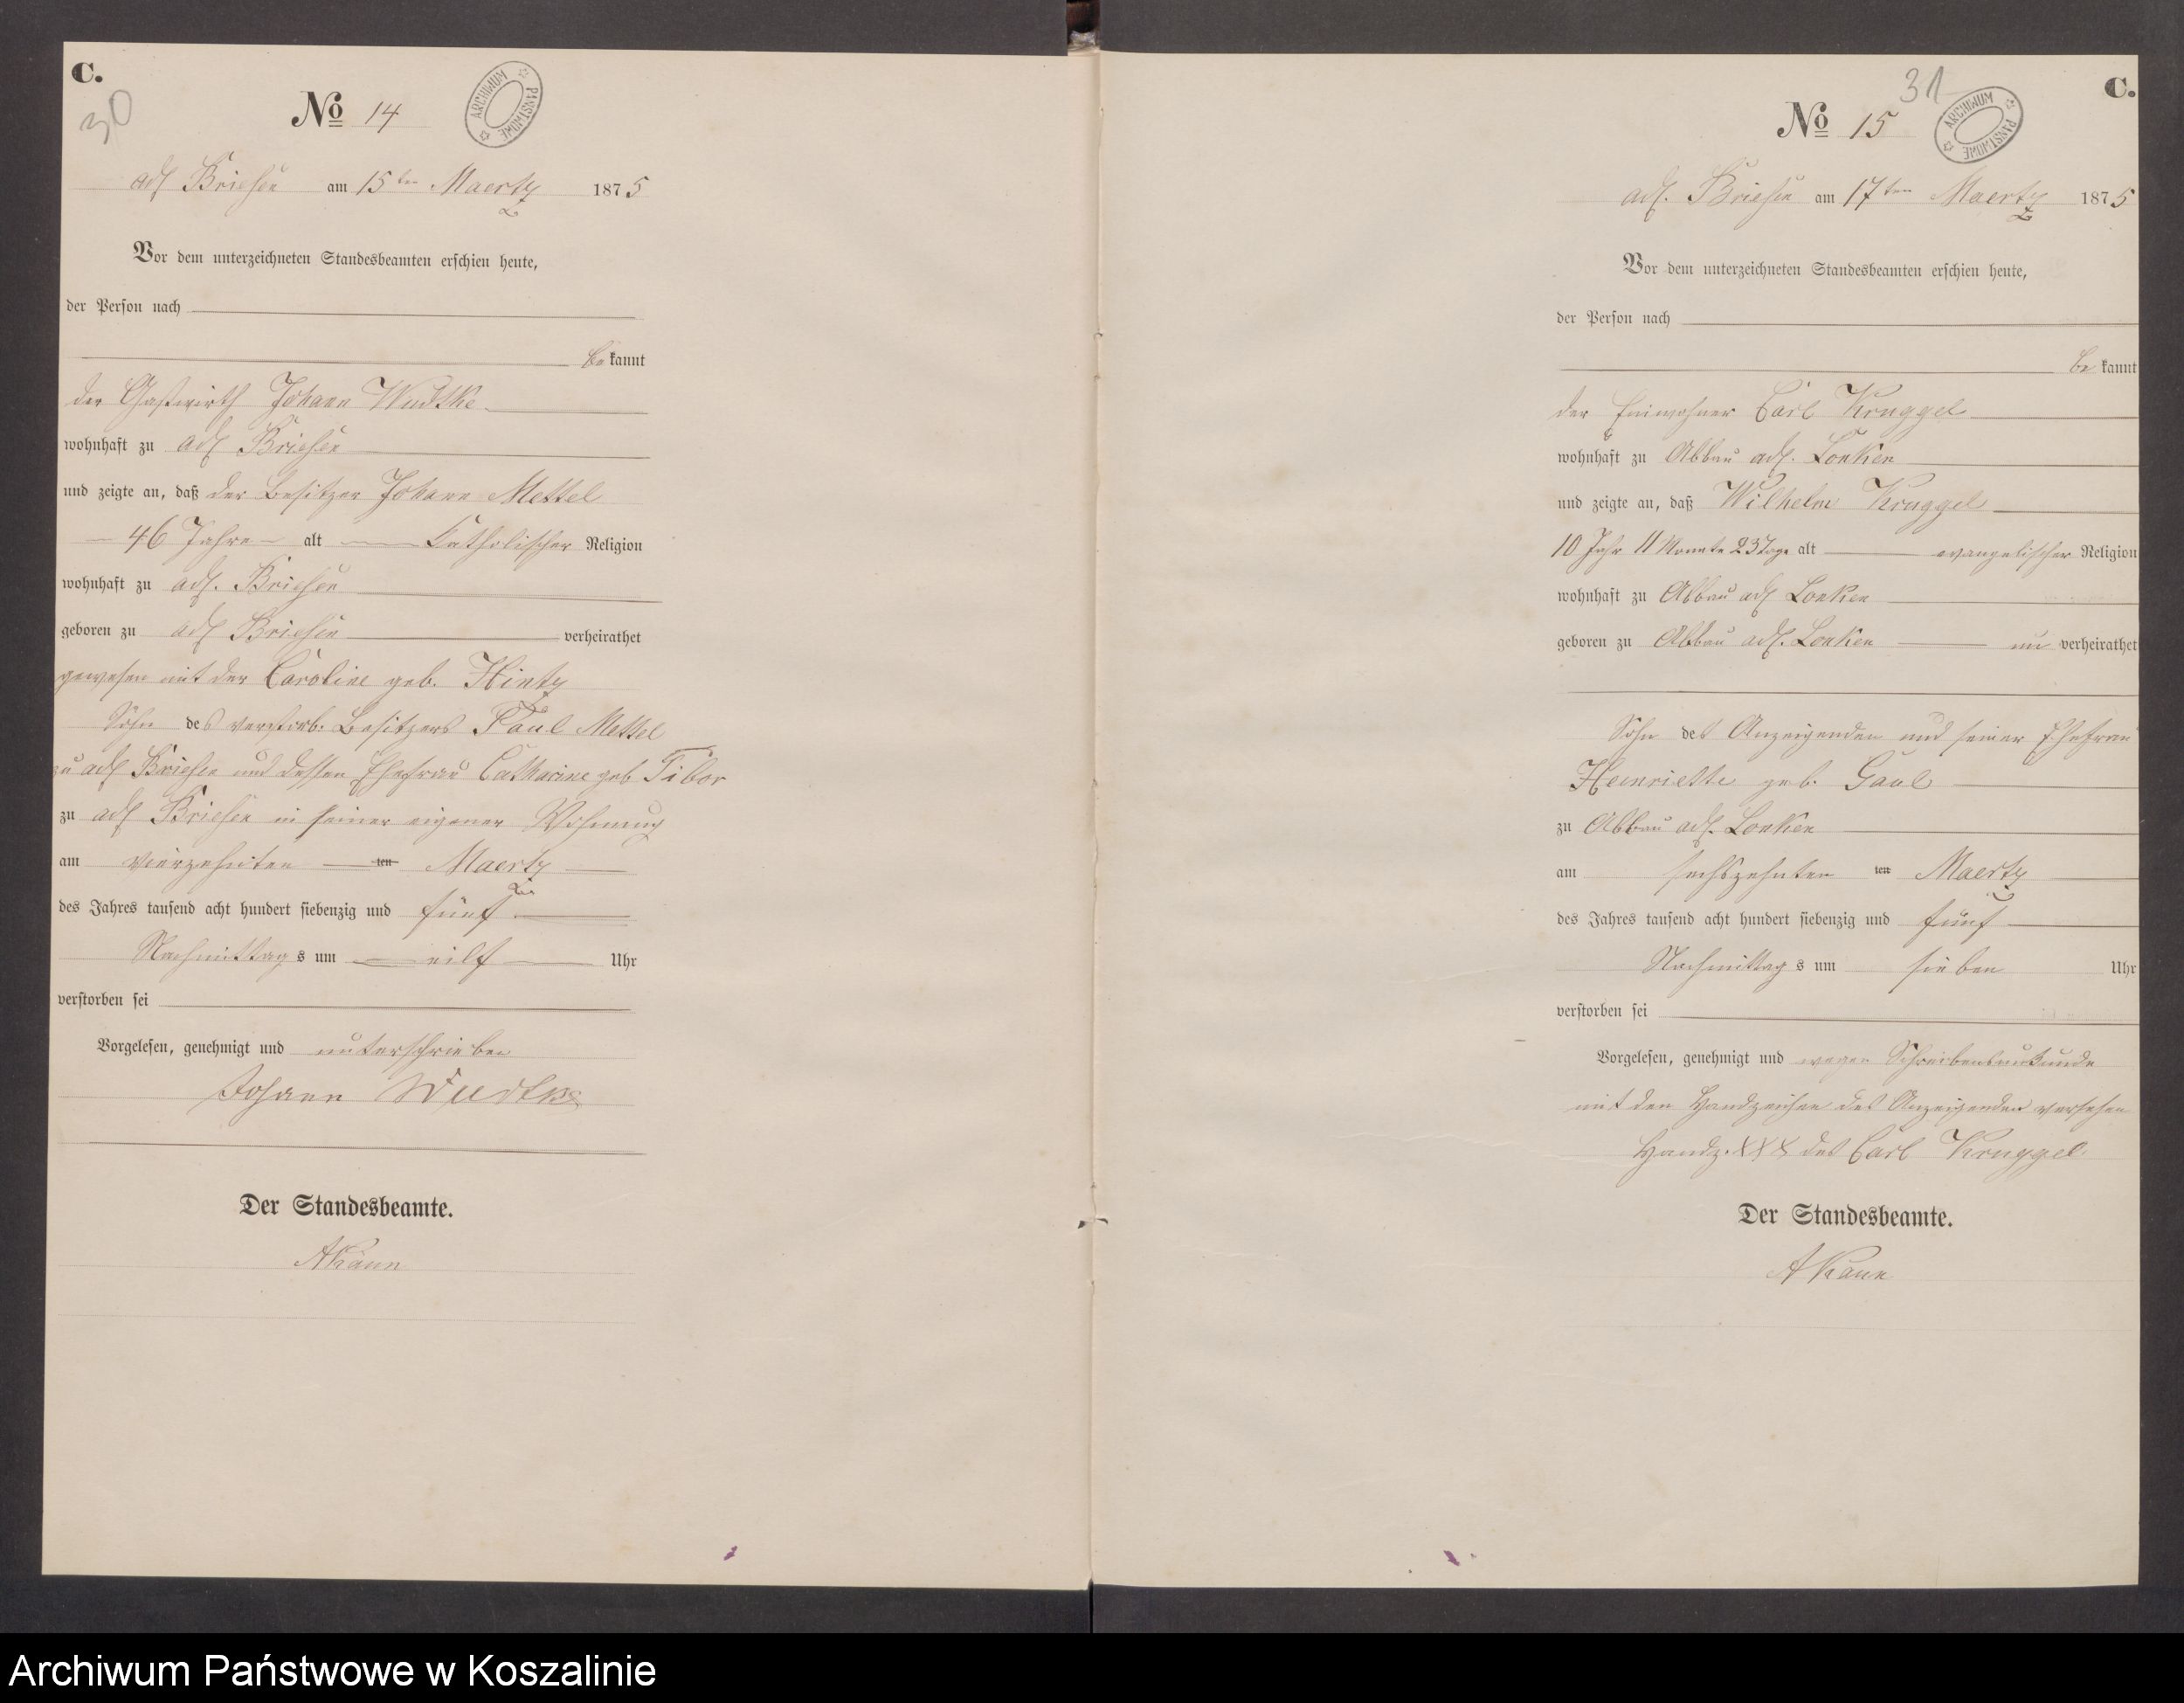 C.
30
No 14
ARCHIWUM PAŃSTWOWE
adl Briesen am 15ten Maertz 1875
Vor dem unterzeichneten Standesbeamten erschien heute,
der Person nach
be kannt
der Gastwirth Johann Wudtke
wohnhaft zu adl Briesen
und zeigte an, daß der Besitzer Johann Mettel
46 Jahre alt Catholischer Religion
wohnhaft zu adl. Briesen
geboren zu adl Briesen verheirathet
gewesen mit der Caroline geb. Hintz
Sohn des verstorb. Besitzers Paul Mettel
zu adl Briesen und dessen Ehefrau Catharine geb Tibor
zu adl Briesen in seiner eigenen Wohnung
am vierzehnten ten Maertz
des Jahres tausend acht hundert siebenzig und fünf
Nachmittag s um eilf Uhr
verstorben sei
Vorgelesen, genehmigt und unterschrieben
Johann Wudtke
Der Standesbeamte.
AKann
31
C.
No 15
ARCHIWUM PAŃSTWOWE
adl. Briesen am 17ten Maertz 1875
Vor dem unterzeichneten Standesbeamten erschien heute,
der Person nach
be kannt
der Einwohner Carl Kruggel
wohnhaft zu Abbau adl. Lonken
und zeigte an, daß Wilhelm Kruggel
10 Jahr 11 Monate 23 Tage alt evangelischer Religion
wohnhaft zu Abbau adl Lonken
geboren zu Abbau adl. Lonken un verheirathet
Sohn des Anzeigenden und seiner Ehefrau
Heinriette geb. Gaul
zu Abbau adl. Lonken
am sechszehnten ten Maertz
des Jahres tausend acht hundert siebenzig und fünf
Nachmittag s um sieben Uhr
verstorben sei
Vorgelesen, genehmigt und wegen Schreibensunkunde
mit den Handzeichen des Anzeigenden versehen
Handz. XXX des Carl Kruggel.
Der Standesbeamte.
AKann
Archiwum Państwowe w Koszalinie